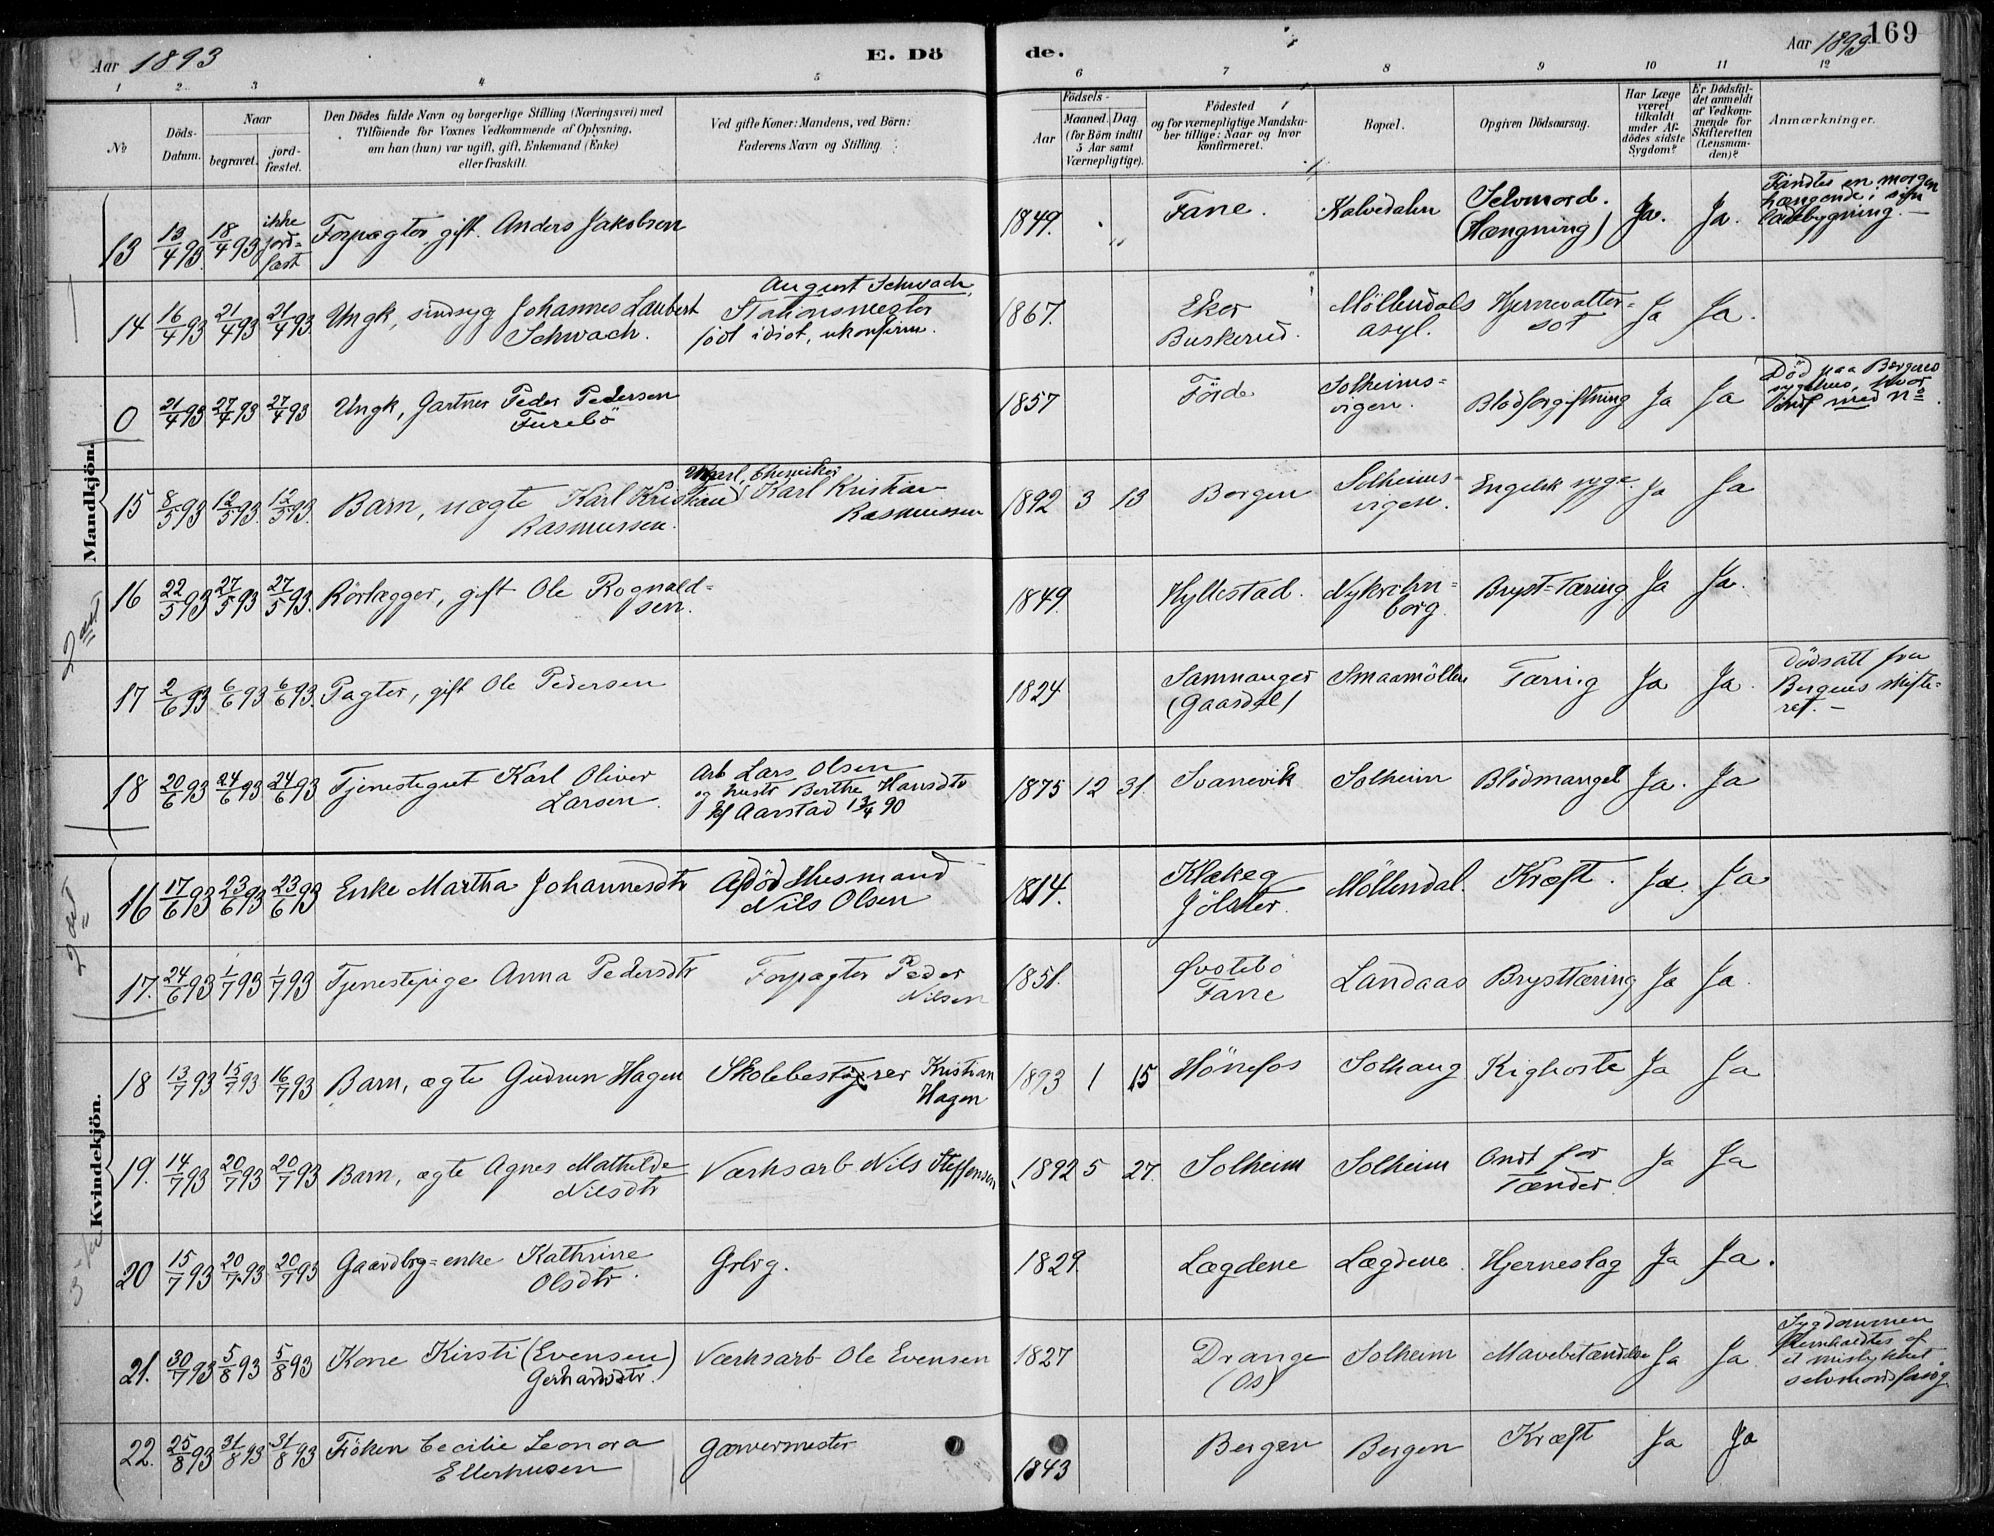 Aar 1893
E. Dö
de.
Aar 1893
169
1 2 3 4 5 6 7 8 9 10 11 12
No
Döds-Datum.
Naar
begravet.
jord-fæstet.
Den Dödes fulde Navn og borgerlige Stilling (Næringsvei) med
Tilföiende for Voxnes Vedkommende af Oplysning,
om han (hun) var ugift, gift, Enkemand (Enke)
eller fraskilt.
Ved gifte Koner: Mandens, ved Börn:
Faderens Navn og Stilling.
Födsels-
Aar
Maaned. Dag
(for Börn indtil
5 Aar samt
Værnepligtige).
Födested
og for værnepligtige Mandska-
ber tillige: Naar og hvor
konfirmeret.
Bopæl.
Opgiven Dödsaarsag.
Har Læge
været
tilkaldt
under Af-
dödes sidste
Sygdom?
Er Dödsfal-
det anmeldt
af Vedkom-
mende for
Skifteretten
(Lensman-
den)?
Anmærkninger.
Mandkjön.
13 13/4 93 18/4 93 ikke jord-fæst Forpagter, gift. Anders Jakobsen 1849. Fane. Kalvedalen Selvmord. (Hængning) Ja. Ja. Fandtes en morgen hængende i sin ladebygning. —
14 16/4 93 21/4 93 21/4 93 Ungk, sindsyg Johannes Laubert Schwach. August Schwach, Stationsmester født idiot, ukonfirm. 1867. Eker Buskerud. Møllendals asyl. Hjernevatter-sot Ja Ja.
0 21/4 93 27/4 93 27/4 93 Ungk, Gartner Peder Pedersen Furebö 1857 Förde Solheims-vigen. Blodforgiftning Ja Ja Død paa Bergens sygehus, hvor indf med No.
15 8/5 93 12/5 93 12/5 93 Barn, uægte Karl Kristian Rasmussen. Ungkarl, Chemiker Karl Kristian Rasmussen 1892 3 13 Bergen Solheims-vigen. Engelsk syge Ja Ja
16 22/5 93 27/5 93 27/5 93 Rörlægger, gift Ole Rognald-sen. 1849. Hyllestad. Nykrohn-borg Bryst-Tæring Ja Ja.
17 2/6 93 6/6 93 6/6 93. Pagter, gift Ole Pedersen 1824 Samnanger (Gaardal) Smaamöllen Tæring Ja Ja. Dödsatt fra Bergens skifte-ret. —
18 20/6 93 24/6 93 24/6 93 Tjenestegut Karl Oliver Larsen. Arb Lars Olsen og hustr Berthe Hansdtr kf Aarstad 13/4 90 1875 12 31. Svanevik Solheim Blodmangel Ja. Ja
Kvindekjön.
16 17/6 93 23/6 93 23/6 93 Enke Martha Johannesdtr Afdöd Husmand Nils Olsen 1814. Klakeg Jölster. Möllendal. Kræft. Ja. Ja
17. 24/6 93 1/7 93 1/7 93 Tjenestepige Anna Pedersdtr Forpagter Peder Nilsen 1851. Øvstebö Fane Landaas Brysttæring Ja Ja.
18 13/7 93 15/7 93 16/7 93 Barn, ægte Gudrun Hagen Skolebestyrer Kristian Hagen 1893 1 15 Hönefos Solhaug Kighoste Ja Ja
19. 14/7 93 20/7 93 20/7 93 Barn, ægte Agnes Mathilde Nilsdtr Værksarb Nils Steffensen 1892 5 27. Solheim Solheim Ondt for Tænder. Ja Ja
20 15/7 93 20/7 93 20/7 93 Gaardbrg=enke Kathrine Olsdtr. Grbrg. 1829 Lægdene Lægdene. Hjerneslag Ja Ja.
21. 30/7 93 5/8 93 5/8 93 Kone Kirsti (Evensen) Gerhardsdtr. Værksarb Ole Evensen 1827 Drange (Os) Solheim Mavebetændelse Ja Ja Sygdommen fremkaldtes af et mislykket selvmordsforsøg
22. 25/8 93 31/8 93 31/8 93 Fröken Cecilie Leonora Ellerhusen Garvermester 1843 Bergen Bergen Kræft Ja Ja